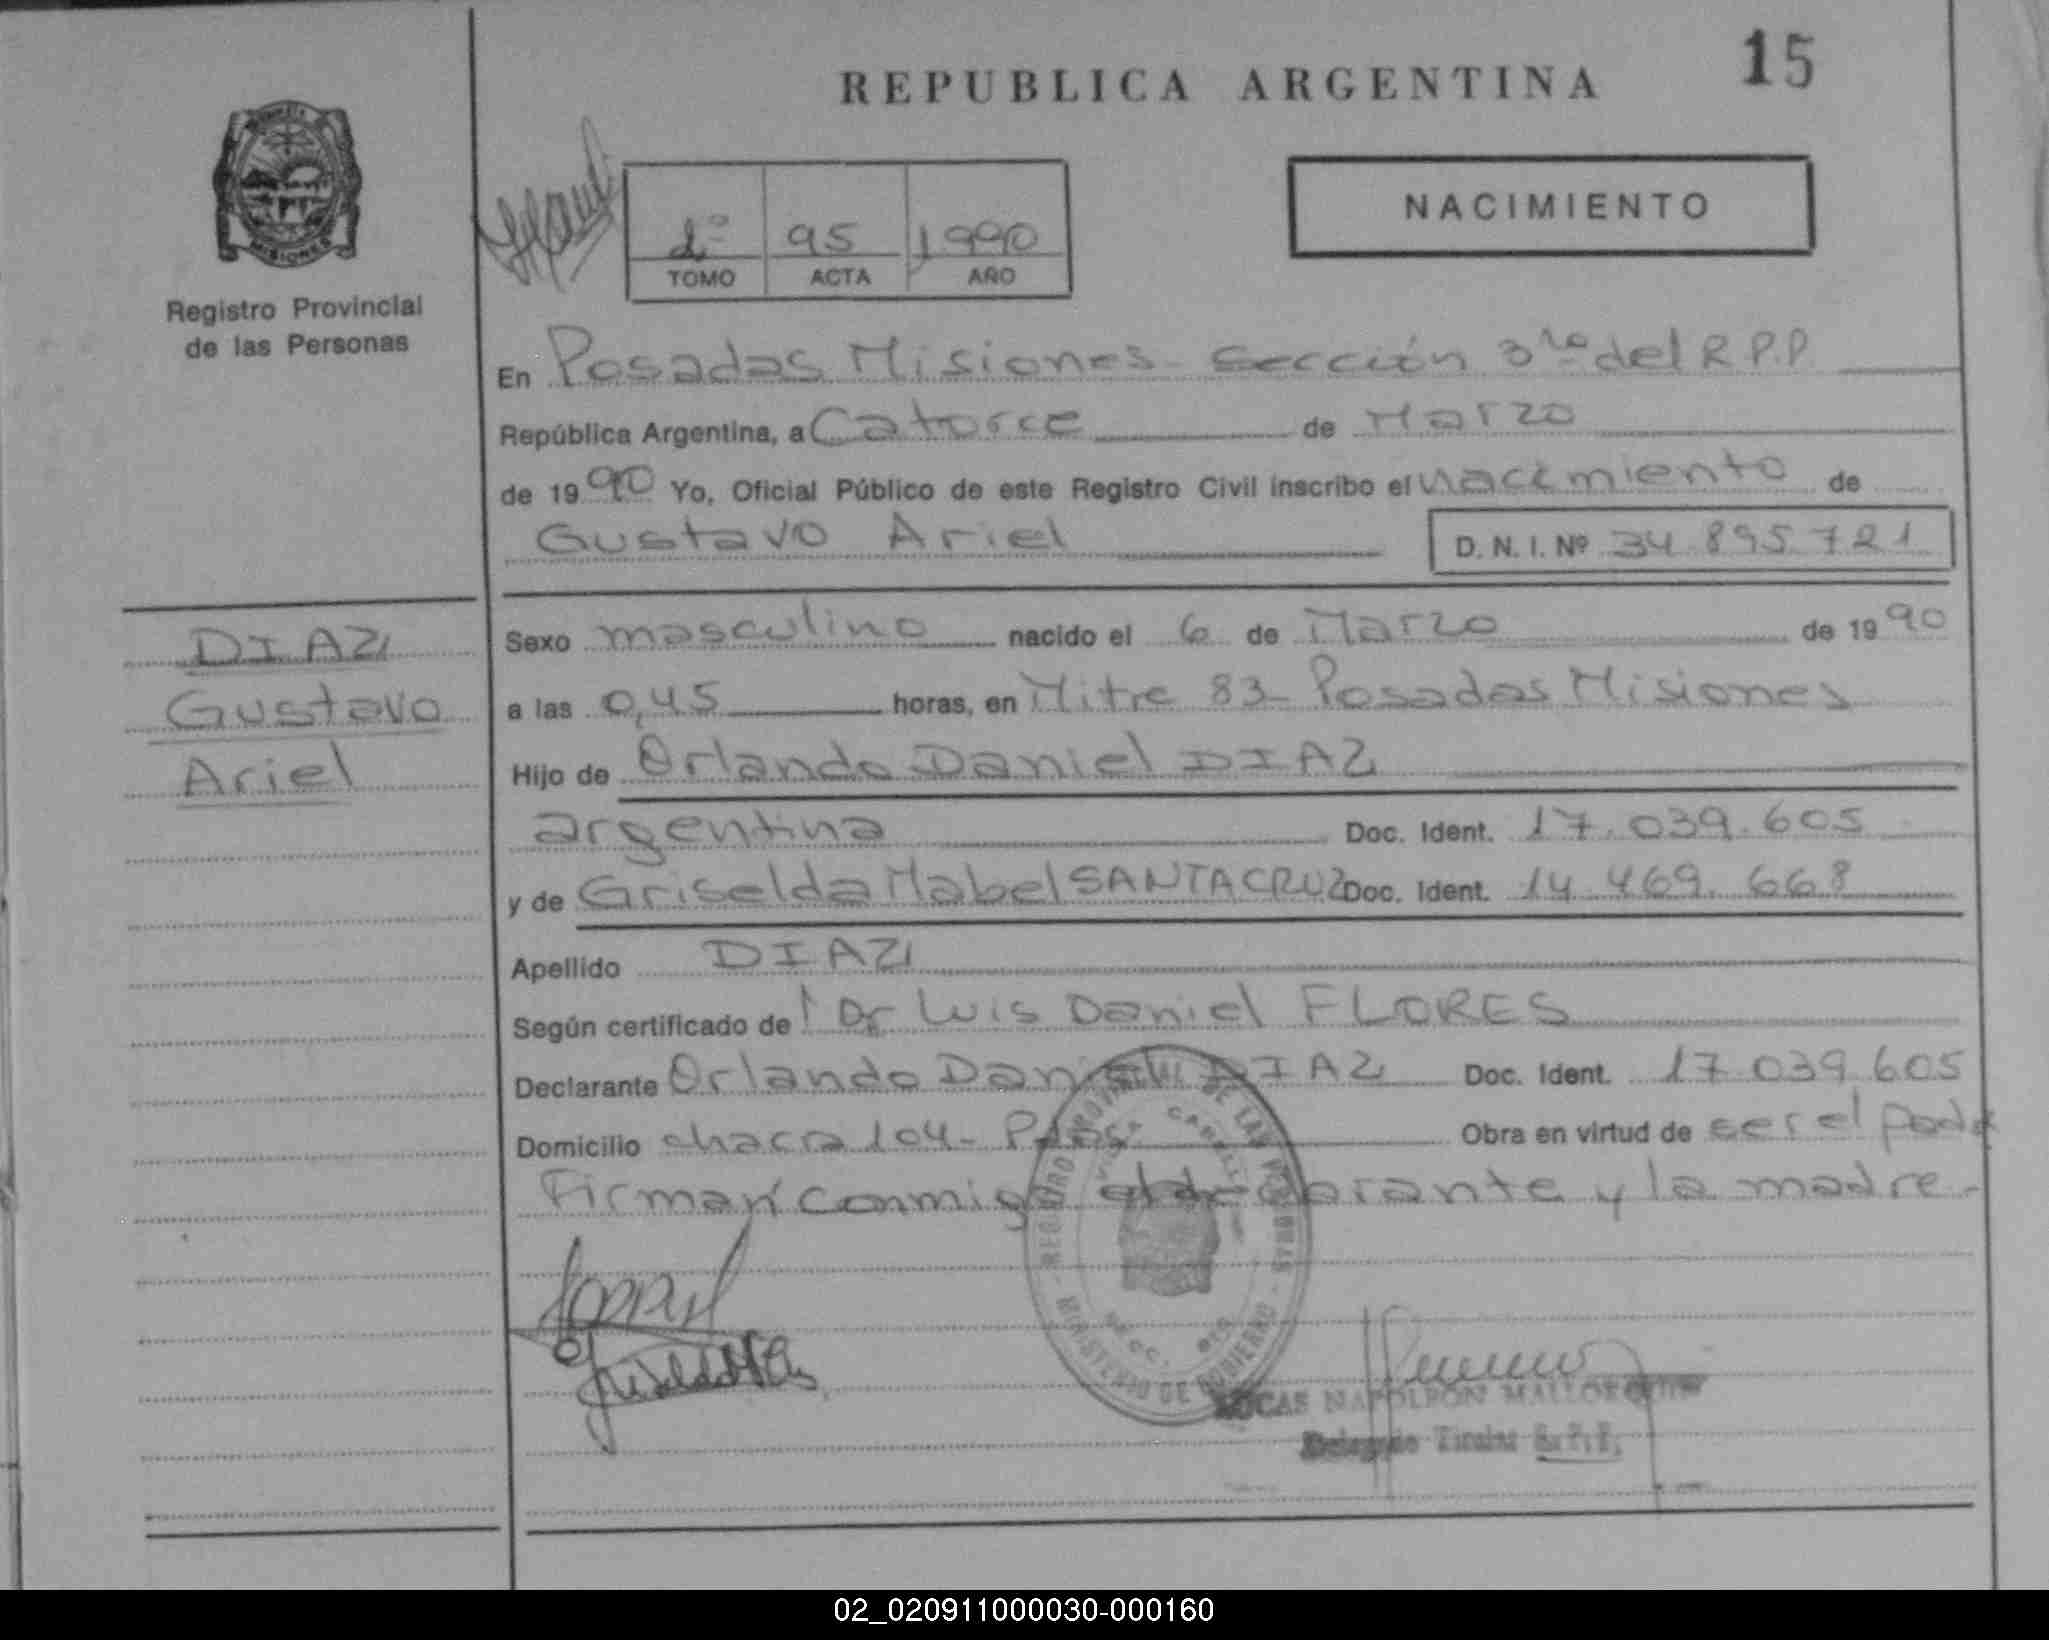 REPUBLICA ARGENTINA
15
MISIONES
Registro Provincial
de las Personas
95 1990
TOMO ACTA AÑO
NACIMIENTO
En Posadas Misiones - Sección 3ra del R.P.P.
República Argentina, a Catorce de Marzo
de 1990 Yo, Oficial Público de este Registro Civil inscribo el nacimiento de
Gustavo Ariel
D. N. I. Nº 34.895.721
DIAZ
Gustavo
Ariel
Sexo masculino nacido el 6 de Marzo de 1990
a las 0,45 horas, en Mitre 83 - Posadas Misiones
Hijo de Orlando Daniel DIAZ
argentina Doc. Ident. 17.039.605
y de Griselda Mabel SANTACRUZ Doc. Ident. 14.469.668
Apellido DIAZ
Según certificado del Dr Luis Daniel FLORES
Declarante Orlando Daniel DIAZ Doc. Ident. 17.039.605
Domicilio chacra 104 - Pdas Obra en virtud de ser el padre
Firman conmigo el declarante y la madre.-
REGISTRO PROVINCIAL DE LAS PERSONAS
MINISTERIO DE GOBIERNO
LUCAS NAPOLEON
Delegado Titular R.P.P.
02_020911000030-000160